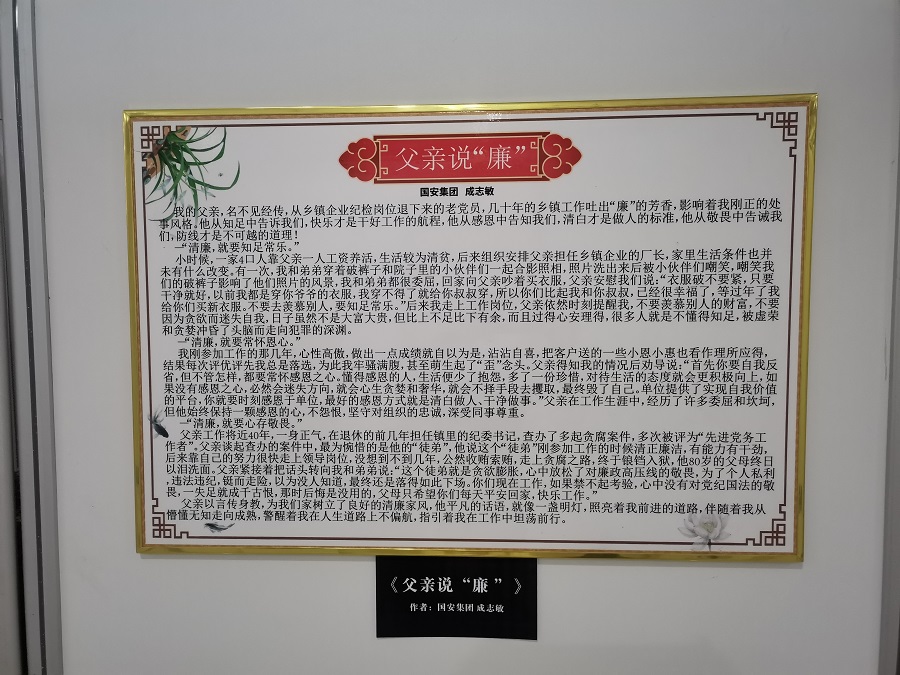 父亲说“廉”
国安集团 成志敏
我的父亲，名不见经传，从乡镇企业纪检岗位退下来的老党员，几十年的乡镇工作吐出“廉”的芳香，影响着我刚正的处
事风格。他从知足中告诉我们，快乐才是干好工作的航程，他从感恩中告知我们，清白才是做人的标准，他从敬畏中告诫我
们，防线才是不可越的道理！
一“清廉，就要知足常乐。”
小时候，一家4口人靠父亲一人工资养活，生活较为清贫，后来组织安排父亲担任乡镇企业的厂长，家里生活条件也并
未有什么改变。有一次，我和弟弟穿着破裤子和院子里的小伙伴们一起合影照相，照片洗出来后被小伙伴们嘲笑，嘲笑我
们的破裤子影响了他们照片的风景，我和弟弟都很委屈，回家向父亲吵着买衣服，父亲安慰我们说：“衣服破不要紧，只要
干净就好，以前我都是穿你爷爷的衣服，我穿不得了就给你叔叔穿，所以你们比起我和你叔叔，已经很幸福了，等过年了我
给你们买新衣服。不要去羡慕别人，要知足常乐。”后来我走上工作岗位，父亲依然时刻提醒我，不要羡慕别人的财富，不要
因为贪欲而迷失自我，日子虽然不是大富大贵，但比上不足比下有余，而且过得心安理得，很多人就是不懂得知足，被虚荣
和贪婪冲昏了头脑而走向犯罪的深渊。
一“清廉，就要常怀恩心。”
我刚参加工作的那几年，心性高傲，做出一点成绩就自以为是，沾沾自喜，把客户送的一些小恩小惠也看作理所应得，
结果每次评优评先我总是落选，为此我牢骚满腹，甚至萌生起了“歪”念头。父亲得知我的情况后劝导说：“首先你要自我反
省，但不管怎样，都要常怀感恩之心。懂得感恩的人，生活便少了抱怨，多了一份珍惜，对待生活的态度就会更积极向上，如
果没有感恩之心，必然会迷失方向，就会心生贪婪和奢华，就会不择手段去攫取，最终毁了自己。单位提供了实现自我价值
的平台，你就要时刻感恩于单位，最好的感恩方式就是清白做人、干净做事。”父亲在工作生涯中，经历了许多委屈和坎坷，
但他始终保持一颗感恩的心，不怨恨，坚守对组织的忠诚，深受同事尊重。
一“清廉，就要心存敬畏。”
父亲工作将近40年，一身正气，在退休的前几年担任镇里的纪委书记，查办了多起贪腐案件，多次被评为“先进党务工
作者”。父亲谈起查办的案件中，最为惋惜的是他的“徒弟”，他说这个“徒弟”刚参加工作的时候清正廉洁，有能力有干劲，
后来靠自己的努力很快走上领导岗位，没想到不到几年，公然收贿索贿，走上贪腐之路，终于锒铛入狱，他80岁的父母终日
以泪洗面。父亲紧接着把话头转向我和弟弟说：“这个徒弟就是贪欲膨胀，心中放松了对廉政高压线的敬畏，为了个人私利
，违法违纪，铤而走险，以为没人知道，最终还是落得如此下场。你们现在工作，如果禁不起考验，心中没有对党纪国法的敬
畏，一失足就成千古恨，那时后悔是没用的，父母只希望你们每天平安回家，快乐工作。”
父亲以言传身教，为我们家树立了良好的清廉家风，他平凡的话语，就像一盏明灯，照亮着我前进的道路，伴随着我从
懵懂无知走向成熟，警醒着我在人生道路上不偏航，指引着我在工作中坦荡前行。
《父亲说“廉”》
作者：国安集团 成志敏